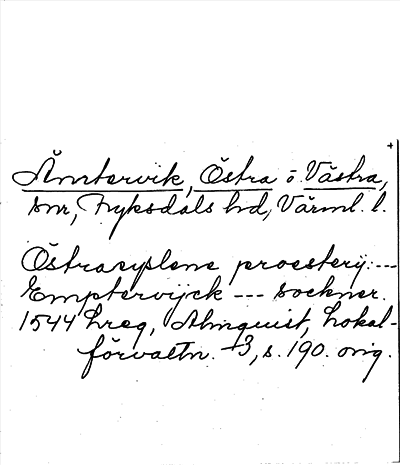 Ämtervik, Östra o. Västra,
snr, Fryksdals hd, Värml. l.
Östrasyslens proestery: ---
Emptervijck --- sockner.
1544 hreg, Almquist, Lokal-
förvaltn. +3, s. 190. orig.